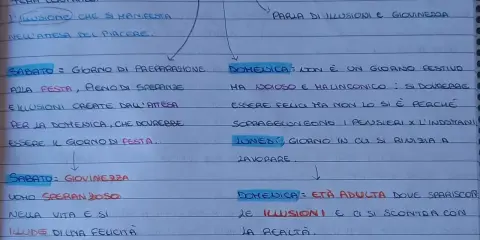 L'ILLUSIONE CHE SI MANIFESTA
NELL'ATTESA DEL PIACERE.
PARLA DI ILLUSIONI E GIOVINEZZA
SABATO: GIORNO DI PREPARAZIONE
ALLA FESTA, PIENO DI SPERANZE
E ILLUSIONI CREATE DALL'ATTESA
PER LA DOMENICA, CHE DOVREBBE
ESSERE IL GIORNO DI FESTA.
DOMENICA: NON È UN GIORNO FESTIVO
MA NOIOSO E MALINCONICO: SI DOVREBBE
ESSERE FELICI MA NON LO SI È PERCHÉ
SOPRAGGIUNGONO I PENSIERI X L'INDOMANI
LUNEDÌ: GIORNO IN CUI SI RINIZIA A
LAVORARE.
SABATO: GIOVINEZZA
UOMO SPERANZOSO
NELLA VITA E SI
ILLUDE DI UNA FELICITÀ
DOMENICA: ETÀ ADULTA DOVE SPARISCON
LE ILLUSIONI E CI SI SCONTRA CON
LA REALTÀ.